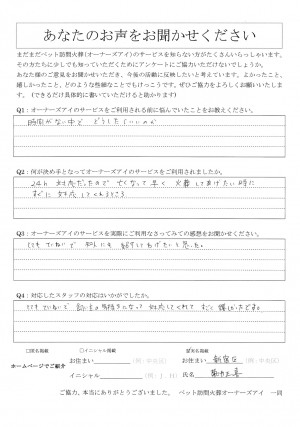 あなたのお声をお聞かせください
まだまだペット訪問火葬(オーナーズアイ)のサービスを知らない方がたくさんいらっしゃいます。
その方たちに少しでも知っていただくためにアンケートにご協力いただけないでしょうか。
あなた様のご意見をお聞かせいただき、今後の活動に反映したいと考えています。よかったこと、
嬉しかったこと、どのような些細なことでもけっこうです。ぜひご協力をよろしくお願いいたしま
す。(できるだけ具体的に書いていただけると助かります)
Q1:オーナーズアイのサービスをご利用される前に悩んでいたことをお教えください。
時間がない中で どうしたらいいのか
Q2:何が決め手となってオーナーズアイのサービスをご利用されましたか。
24h 対応だったので 亡くなって早く 火葬してあげたい時に
すぐに 対応してくれるところ
Q3:オーナーズアイのサービスを実際にご利用なさってみての感想をお聞かせください。
とても ていねいで 知人にも 紹介してあげたいと思った。
Q4:対応したスタッフの対応はいかがでしたか。
とても ていねいで 対応してくれて すごく 嬉しかったです。
□匿名掲載 □イニシャル掲載 実名掲載
お住まい お住まい 新宿区
ホームページでご紹介
イニシャル 氏名
ご協力、本当にありがとうございました。 ペット訪問火葬オーナーズアイ 一同